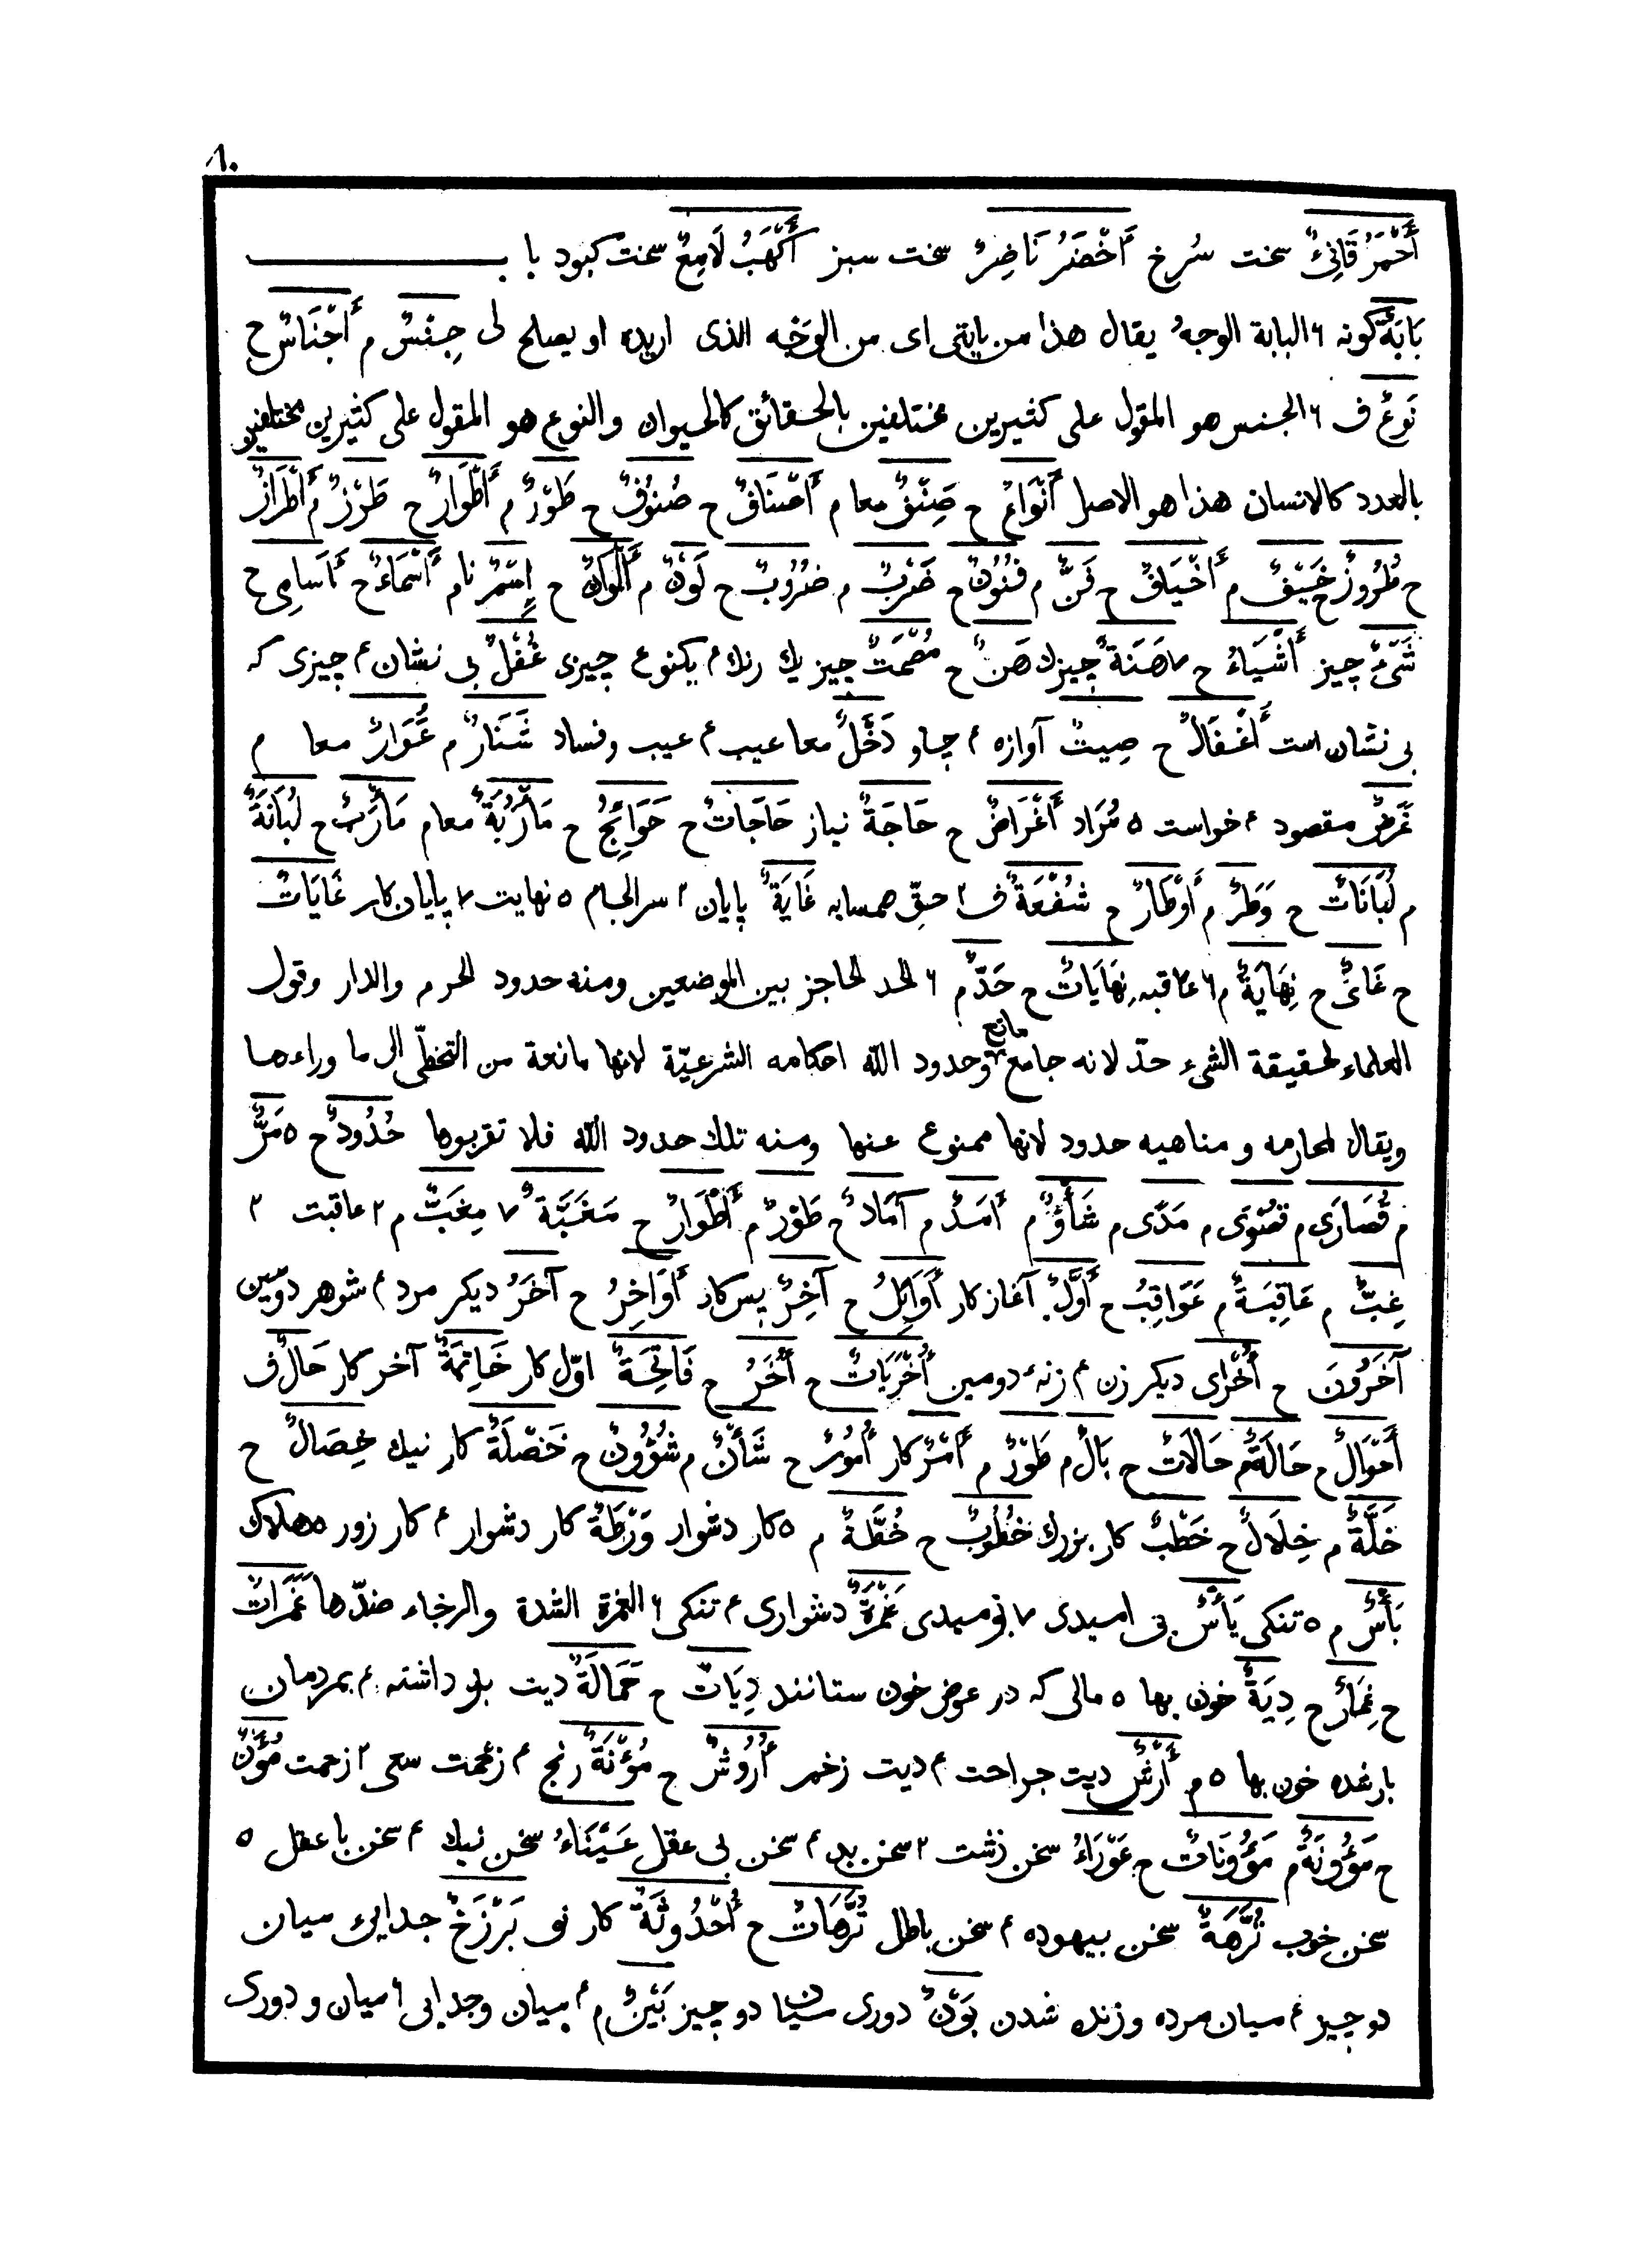 ٨٠
أَحْمَرُ قَانِئٌ سخت سُرخ أَخْضَرُ نَاضِرٌ سخت سبز أَكْهَبُ لَامِعٌ سخت كبود با ب
بَابَةٌ كونه ۶ البابة الوجهُ يقال هذا من بابتى اى من الوَجْه الذى اريده او يصلح لى جِنْسٌ م أَجْنَاسٌ ح
نَوْعٌ ف ۶ الجنس هو المقول على كثيرين مختلفين بالحقائق كالحيوان والنوع هو المقول على كثيرين مختلفين
بالعدد كالانسان هذا هو الاصل أَنْوَاعٌ ح صِنْفٌ معا م أَصْنَافٌ ح صُنُوْفٌ ح طَوْرٌ م أَطْوَارٌ ح طَرْزٌ م أَطْرَازٌ
ح طُرُوزٌ ح خَيْفٌ م أَخْيَافٌ ح فَنٌّ م فُنُونٌ ح ضَرْبٌ م ضُرُوبٌ ح لَوْنٌ م أَلْوَانٌ ح إِسْمٌ نام أَسْمَاءٌ ح أَسَامِى ح
شَىْءٌ چيز أَشْيَاءُ ح ٧ هَنَةٌ چيزك هَنٌ ح مُصْمَتٌ چيز يك رنك ۴ يكنوع چيزى غُفْلٌ بى نشان ۴ چيزى كه
بى نشان است أَغْفَالٌ ح صِيتٌ آوازه ۴ چاو دَخَلٌ معا عيب ۴ عيب وفساد شَنَارٌ م عَُوَارٌ معا م
غَرَضٌ مقصود ۴ خواست ۵ مُرَاد أَغْرَاضٌ ح حَاجَةٌ نياز حَاجَاتٌ ح حَوَائِجُ ح مَأْرُبَةٌ معا م مَأْرَبٌ ح لُبَانَةٌ
م لُبَانَاتٌ ح وَطَرٌ م أَوْطَارٌ ح شُفْعَةٌ ف ٢ حقّ همسايه غَايَةٌ پايان ٢ سرانجام ۵ نهايت ٧ پايان كار غَايَاتٌ
ح غَاىٌ ح نِهَايَةٌ م ۶ عاقبه نِهَايَاتٌ ح حَدٌّ م ۶ الحد الحاجز بين الموضعين ومنه حدود الحرم والدار وقول
العلماء لحقيقة الشىء حدّ لانه جامع مانع وحدود الله احكامه الشرعيّة لانها مانعة من التخطّى الى ما وراءها
ويقال لمحارمه و مناهيه حدود لانها ممنوع عنها ومنه تلك حدود الله فلا تقربوها حُدُودٌ ح ۵ مَرٌّ
م قُصَارَى م قُصْوَى م مَدًى م شَأْوٌ م أَمَدٌ م آمَادٌ ح طَوْرٌ م أَطْوَارٌ ح مَغَبَّةٌ ٧ مِغَبٌّ م ٢ عاقبت ٢
غِبٌّ م عَاقِبَةٌ م عَوَاقِبُ ح أَوَّلٌ آغاز كار أَوَائِلُ ح آخِرٌ پس كار أَوَاخِرُ ح آخَرُ ديكر مرد ۴ شوهر دومين
آخَرُونَ ح أُخْرَاى ديكر زن ۴ زنهٔ دومين أُخْرَيَاتٌ ح أُخَرُ ح فَاتِحَةٌ اوّل كار خَاتِمَةٌ آخر كار حَالٌ ف
أَحْوَالٌ ح حَالَةٌ م حَالَاتٌ ح بَالٌ م طَوْرٌ م أَمْرٌ كار أُمُورٌ ح شَأْنٌ م شُؤُونٌ ح خَصْلَةٌ كار نيك خِصَالٌ ح
خَلَّةٌ م خِلَالٌ ح خَطْبٌ كار بزرك خُطُوبٌ ح خُطَّةٌ م ۵ كار دشوار وَرْطَةٌ كار دشوار ۴ كار زور ۵ هلاك
بَأْسٌ م ۵ تنكى يَأْسٌ بى اميدى ٧ نوميدى غَمْرَةٌ دشوارى ۴ تنكى ۶ الغمرة الشدة والرخاء ضدّها غَمَرَاتٌ
ح غِمَارٌ ح دِيَةٌ خون بها ۵ مالى كه در عوض خون ستانند دِيَاتٌ ح حَمَالَةٌ ديت بر داشته ۴ بمردمان
بار شده خون بها ۵ م أَرْشٌ ديت جراحت ۴ ديت زخم أُرُوشٌ ح مُؤْنَةٌ رنج ۴ زحمت سعى ٢ زحمت مُؤَنٌ
ح مَؤُونَةٌ م مَؤُونَاتٌ ح عَوْرَاءُ سخن زشت ٢ سخن بد ۴ سخن بى عقل عَيْنَاءُ سخن نيك ۴ سخن با عقل ۵
سخن خوب تُرَّهَةٌ سخن بيهوده ۴ سخن باطل تُرَّهَاتٌ ح أُحْدُوثَةٌ كار نو بَرْزَخٌ جدايئ ميان
دو چيز ۴ ميان مرده و زنده شدن بَوْنٌ دورى ميان دو چيز بَيْنٌ م ۴ ميان وجدايى ۶ ميان و دورى